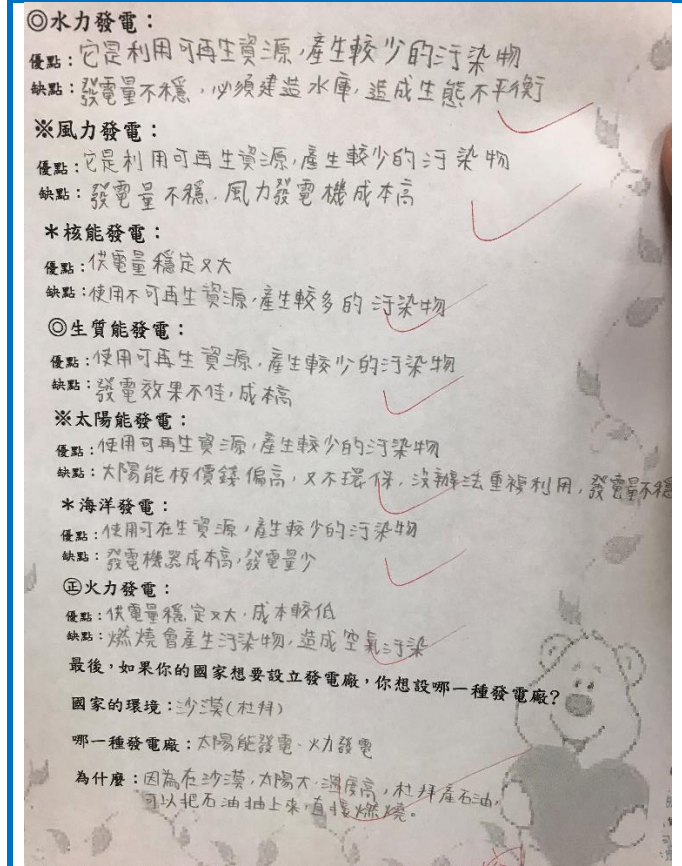 ◎水力發電：
優點：它是利用可再生資源，產生較少的汙染物
缺點：發電量不穩，必須建造水庫，造成生態不平衡
※風力發電：
優點：它是利用可再生資源，產生較少的汙染物
缺點：發電量不穩，風力發電機成本高
＊核能發電：
優點：供電量穩定又大
缺點：使用不可再生資源，產生較多的汙染物
◎生質能發電：
優點：使用可再生資源，產生較少的汙染物
缺點：發電效果不佳，成本高
※太陽能發電：
優點：使用可再生資源，產生較少的汙染物
缺點：太陽能板價錢偏高，又不環保，沒辦法重複利用，發電量不穩
＊海洋發電：
優點：使用可在生資源，產生較少的汙染物
缺點：發電機器成本高，發電量少
㊣火力發電：
優點：供電量穩定又大，成本較低
缺點：燃燒會產生汙染物，造成空氣汙染
最後，如果你的國家想要設立發電廠，你想設哪一種發電廠？
國家的環境：沙漠(杜拜)
哪一種發電廠：太陽能發電、火力發電
為什麼：因為在沙漠，太陽大，溫度高，杜拜產石油，
可以把石油抽上來，直接燃燒。